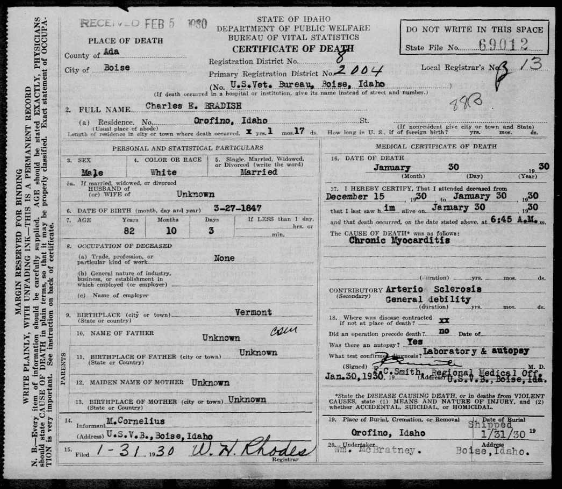 RECEIVED FEB 5 1930
STATE OF IDAHO
DEPARTMENT OF PUBLIC WELFARE
BUREAU OF VITAL STATISTICS
CERTIFICATE OF DEATH
DO NOT WRITE IN THIS SPACE
State File No. 69012
PLACE OF DEATH
County of Ada
City of Boise
Registration District No. 8
Primary Registration District No. 2004
Local Registrar's No. 13
(No. U.S.Vet. Bureau, Boise, Idaho
(If death occurred in a hospital or institution, give its name instead of street and number.)
2. FULL NAME Charles E. BRADISH
(a) Residence. No. Orofino, Idaho St.
(Usual place of abode)
(If nonresident give city or town and State)
Length of residence in city or town where death occurred. x yrs. 1 mos. 17 ds. How long in U. S., if of foreign birth? yrs. mos. ds.
PERSONAL AND STATISTICAL PARTICULARS
3. SEX
Male
4. COLOR OR RACE
White
5. Single, Married, Widowed, or Divorced (write the word)
Married
5a. If married, widowed, or divorced
HUSBAND of
(or) WIFE of Unknown
6. DATE OF BIRTH (month, day and year) 3-27-1847
7. AGE Years Months Days If LESS than 1 day,
82 10 3 hrs. or min.
8. OCCUPATION OF DECEASED
(a) Trade, profession, or particular kind of work None
(b) General nature of industry, business, or establishment in which employed (or employer)
(c) Name of employer
9. BIRTHPLACE (city or town) Vermont
(State or country)
PARENTS
10. NAME OF FATHER Unknown
11. BIRTHPLACE OF FATHER (city or town) Unknown
(State or Country)
12. MAIDEN NAME OF MOTHER Unknown
13. BIRTHPLACE OF MOTHER (city or town) Unknown
(State or Country)
14. Informant M.Cornelius
(Address) U.S.V.B., Boise, Idaho
15. Filed 1-31, 1930 W. H. Rhodes
Registrar
MEDICAL CERTIFICATE OF DEATH
16. DATE OF DEATH
January 30 1930
(Month) (Day) (Year)
17. I HEREBY CERTIFY, That I attended deceased from
December 15 1930 to January 30 1930
that I last saw him alive on January 30 1930
and that death occurred, on the date stated above, at 6:45 A.M. m.
The CAUSE OF DEATH* was as follows:
Chronic Myocarditis
(duration) yrs. mos. ds.
CONTRIBUTORY Arterio Sclerosis
(Secondary) General debility
(duration) yrs. mos. ds.
18. Where was disease contracted
if not at place of death? xx
Did an operation precede death? no Date of
Was there an autopsy? Yes
What test confirmed diagnosis? Laboratory & autopsy
(Signed) M. D.
Jan.30,1930 C.Smith, Regional Medical Off.
U.S.V.B., Boise, Ida.
*State the DISEASE CAUSING DEATH, or in deaths from VIOLENT CAUSES, state (1) MEANS AND NATURE OF INJURY, and (2) whether ACCIDENTAL, SUICIDAL, or HOMICIDAL.
19. Place of Burial, Cremation, or Removal Date of Burial
Orofino, Idaho Shipped 1/31/30 19
20. Undertaker Address
Wm. McBratney. Boise, Idaho.
MARGIN RESERVED FOR BINDING
WRITE PLAINLY, WITH UNFADING INK—THIS IS A PERMANENT RECORD
N. B.—Every item of information should be carefully supplied. AGE should be stated EXACTLY, PHYSICIANS should state CAUSE OF DEATH in plain terms, so that it may be properly classified. Exact statement of OCCUPATION is very important. See instruction on back of certificate.